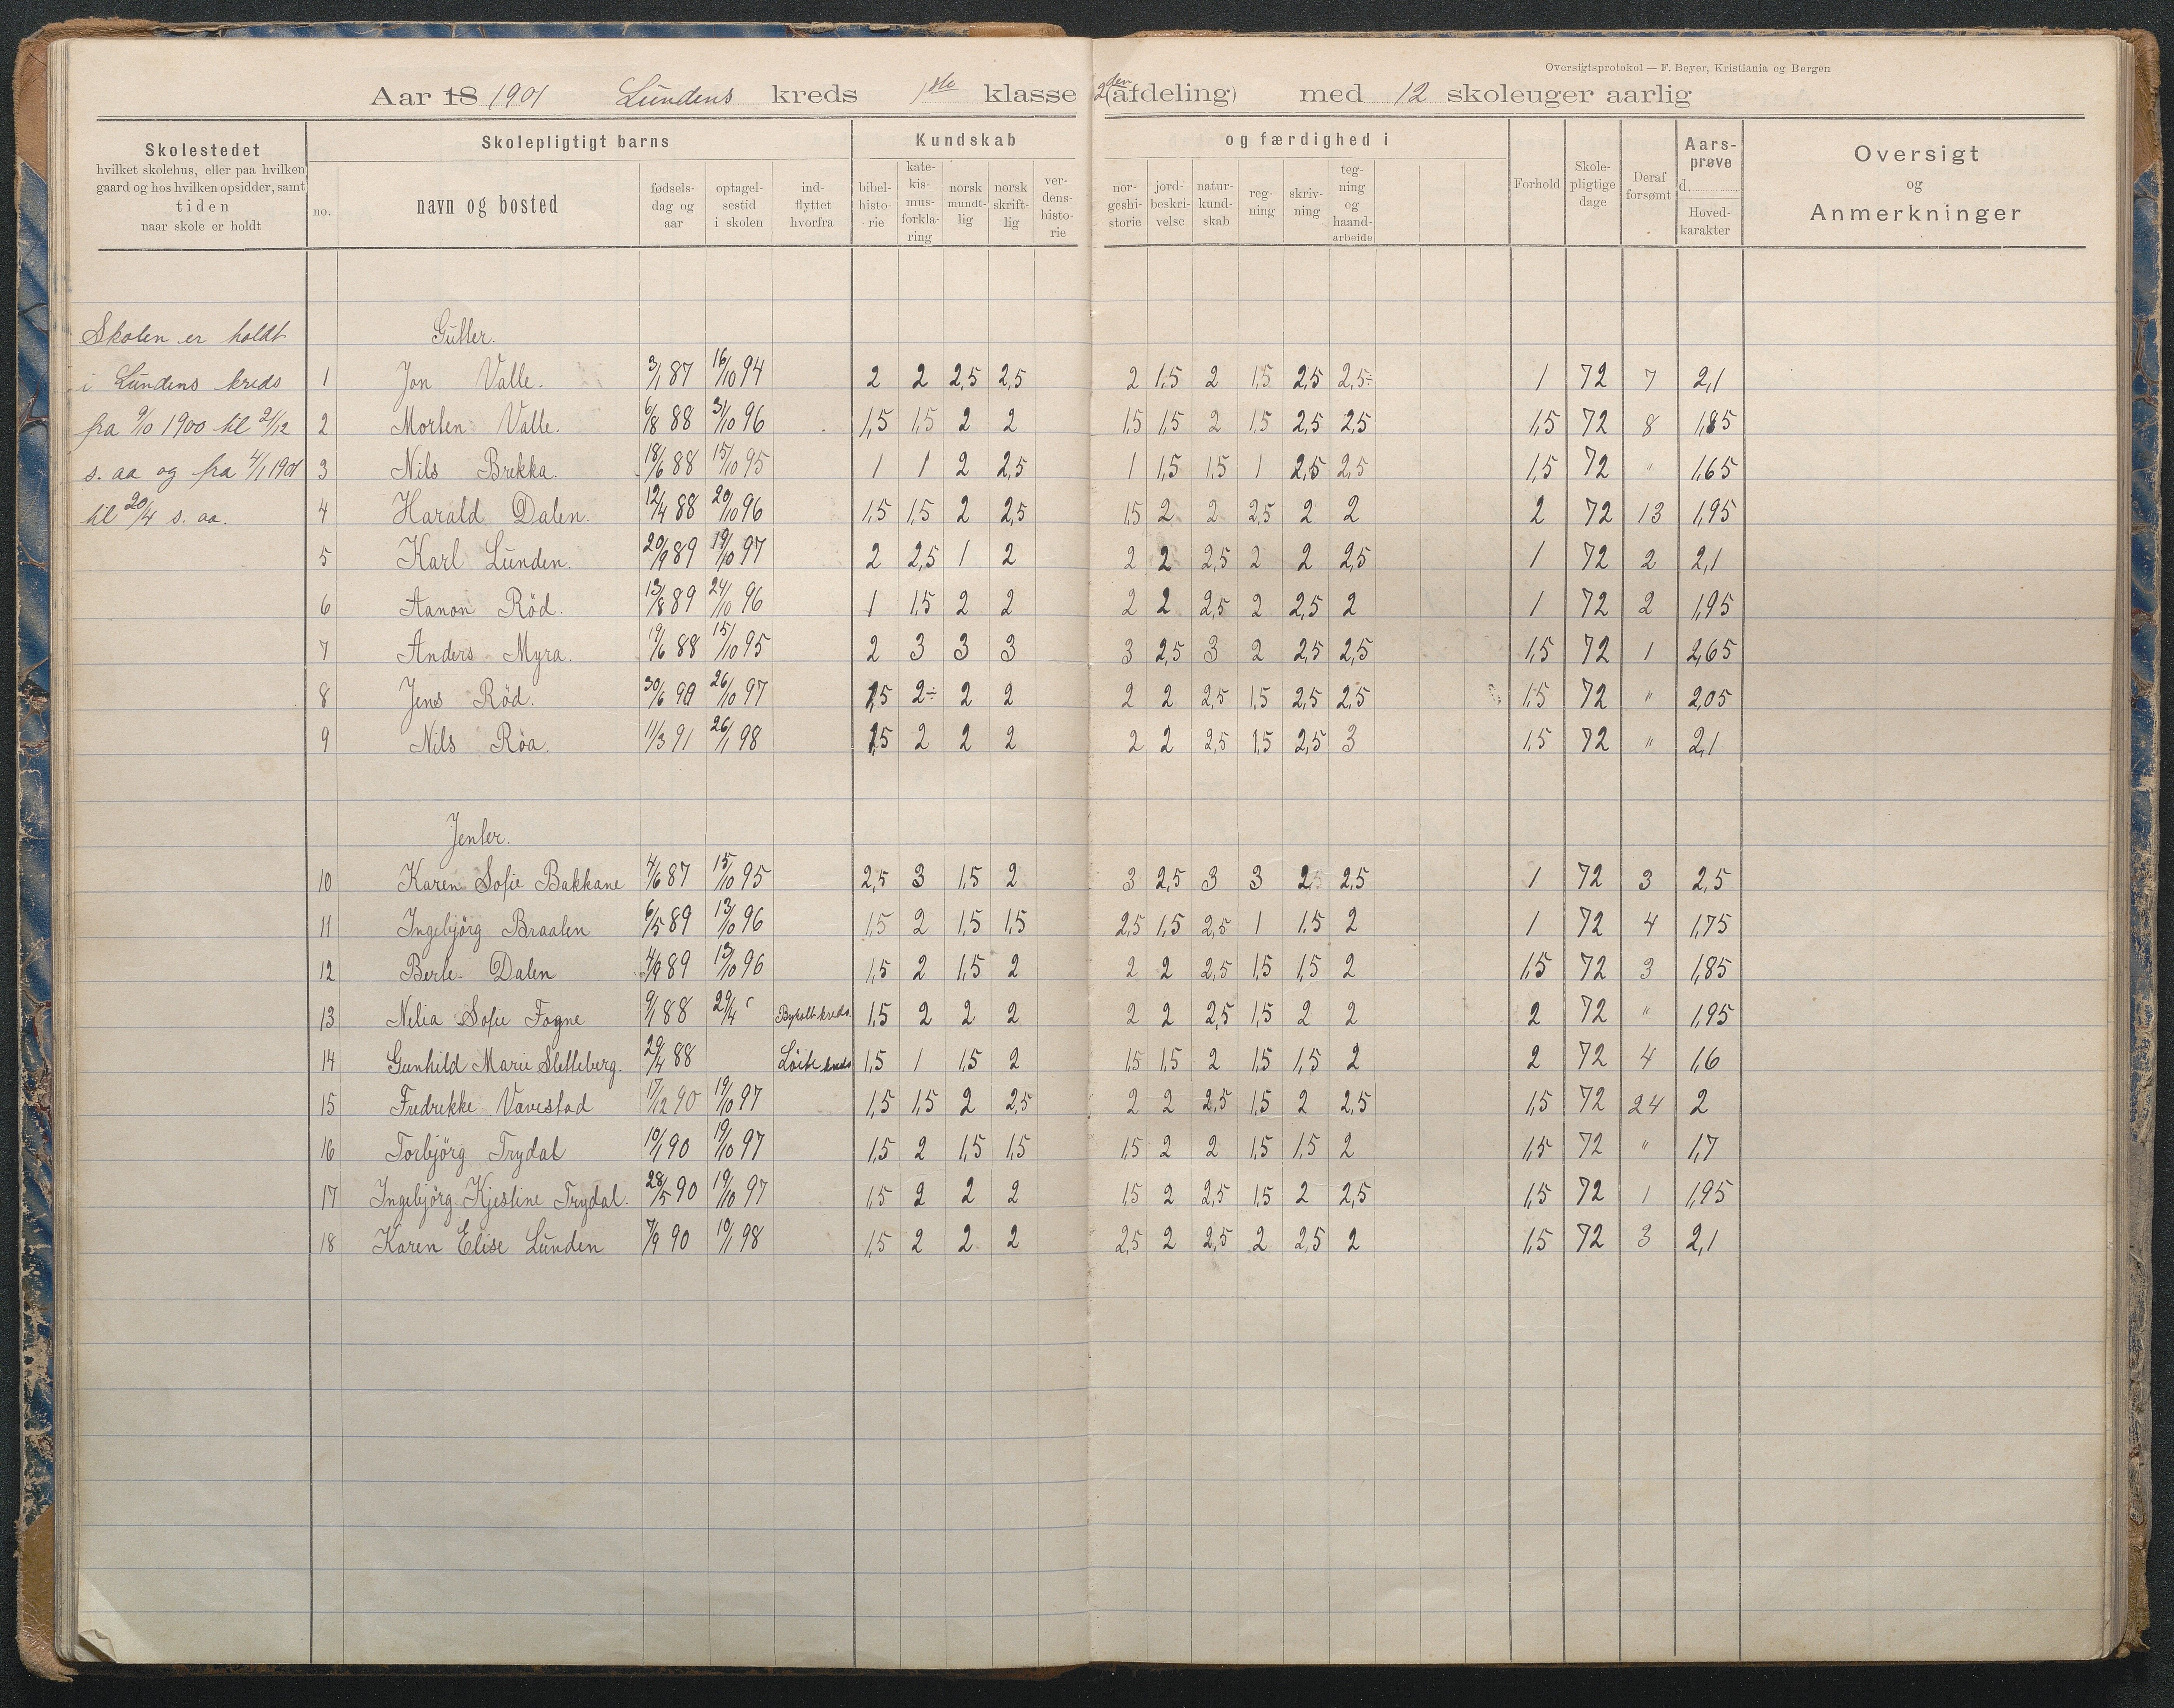 Oversigtsprotokol — F. Beyer, Kristiania og Bergen
Aar 18 1901 Lundens kreds 1ste klasse 2den (afdeling) med 12 skoleuger aarlig
Skolestedet
hvilket skolehus, eller paa hvilken
gaard og hos hvilken opsidder, samt
tiden
naar skole er holdt
Skolepligtigt barns
no.
navn og bosted
fødsels-
dag og
aar
optagel-
sestid
i skolen
ind-
flyttet
hvorfra
Kundskab
bibel-
histo-
rie
kate-
kis-
mus-
forkla-
ring
norsk
mundt-
lig
norsk
skrift-
lig
ver-
dens-
histo-
rie
og færdighed i
nor-
geshi-
storie
jord-
beskri-
velse
natur-
kund-
skab
reg-
ning
skriv-
ning
teg-
ning
og
haand-
arbeide
Forhold
Skole-
pligtige
dage
Deraf
forsømt
Aars-
prøve
d.
Hoved-
karakter
Oversigt
og
Anmerkninger
Skolen er holdt
i Lundens kreds
fra 9/10 1900 til 21/12
s. aa og fra 4/1 1901
til 20/4 s. aa.
Gutter.
1 Jon Valle. 3/1 87 16/10 94 2 2 2,5 2,5 2 1,5 2 1,5 2,5 2,5÷ 1 72 7 2,1
2 Morten Valle. 6/8 88 31/10 96 1,5 1,5 2 2 1,5 1,5 2 1,5 2,5 2,5 1,5 72 8 1,85
3 Nils Brekka. 18/6 88 15/10 95 1 1 2 2,5 1 1,5 1,5 1 2,5 2,5 1,5 72 " 1,65
4 Harald Dalen. 12/4 88 20/10 96 1,5 1,5 2 2,5 1,5 2 2 2,5 2 2 2 72 13 1,95
5 Karl Lunden. 20/9 89 19/10 97 2 2,5 1 2 2 2 2,5 2 2 2,5 1 72 2 2,1
6 Aanon Röd. 13/8 89 24/10 96 1 1,5 2 2 2 2 2,5 2 2,5 2 1 72 2 1,95
7 Anders Myra. 19/6 88 15/10 95 2 3 3 3 3 2,5 3 2 2,5 2,5 1,5 72 1 2,65
8 Jens Röd. 30/6 90 26/10 97 1,5 2÷ 2 2 2 2 2,5 1,5 2,5 2,5 1,5 72 " 2,05
9 Nils Röa. 11/3 91 26/1 98 1,5 2 2 2 2 2 2,5 1,5 2,5 3 1,5 72 " 2,1
Jenter.
10 Karen Sofie Bakkane 4/6 87 15/10 95 2,5 3 1,5 2 3 2,5 3 3 2,5 2,5 1 72 3 2,5
11 Ingebjörg Braaten 6/5 89 13/10 96 1,5 2 1,5 1,5 2,5 1,5 2,5 1 1,5 2 1 72 4 1,75
12 Berte Dalen 4/9 89 13/10 96 1,5 2 1,5 2 2 2 2,5 1,5 1,5 2 1,5 72 3 1,85
13 Nilia Sofie Fogne 9/1 88 29/4 Byholt kreds. 1,5 2 2 2 2 2 2,5 1,5 2 2 2 72 " 1,95
14 Gunhild Marie Sletteberg. 29/4 88 Löite kreds 1,5 1 1,5 2 1,5 1,5 2 1,5 1,5 2 2 72 4 1,6
15 Fredrikke Vavestad 17/12 90 19/10 97 1,5 1,5 2 2,5 2 2 2,5 1,5 2 2,5 1,5 72 24 2
16 Torbjörg Trydal 10/1 90 19/10 97 1,5 2 1,5 1,5 1,5 2 2 1,5 1,5 2 1,5 72 " 1,7
17 Ingebjörg Kjestine Trydal. 28/5 90 19/10 97 1,5 2 2 2 1,5 2 2,5 1,5 2 2,5 1,5 72 1 1,95
18 Karen Elise Lunden 7/9 90 10/1 98 1,5 2 2 2 2,5 2 2,5 2 2,5 2 1,5 72 3 2,1